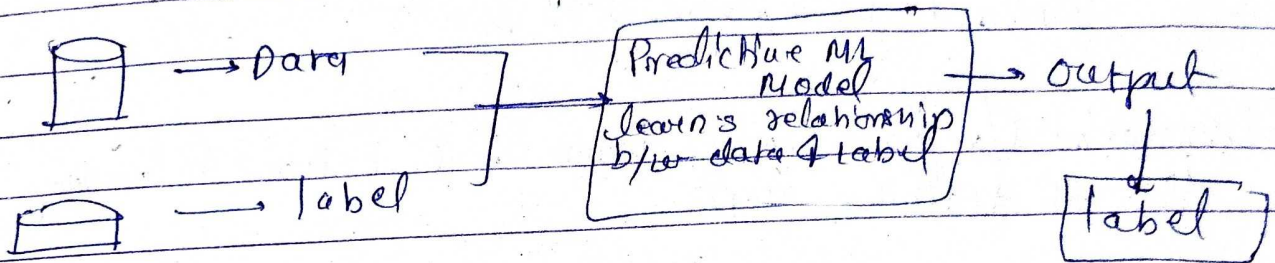 → Data
Predictive ML
Model
learn's relationship
b/w data & label
→ output
→ label
label